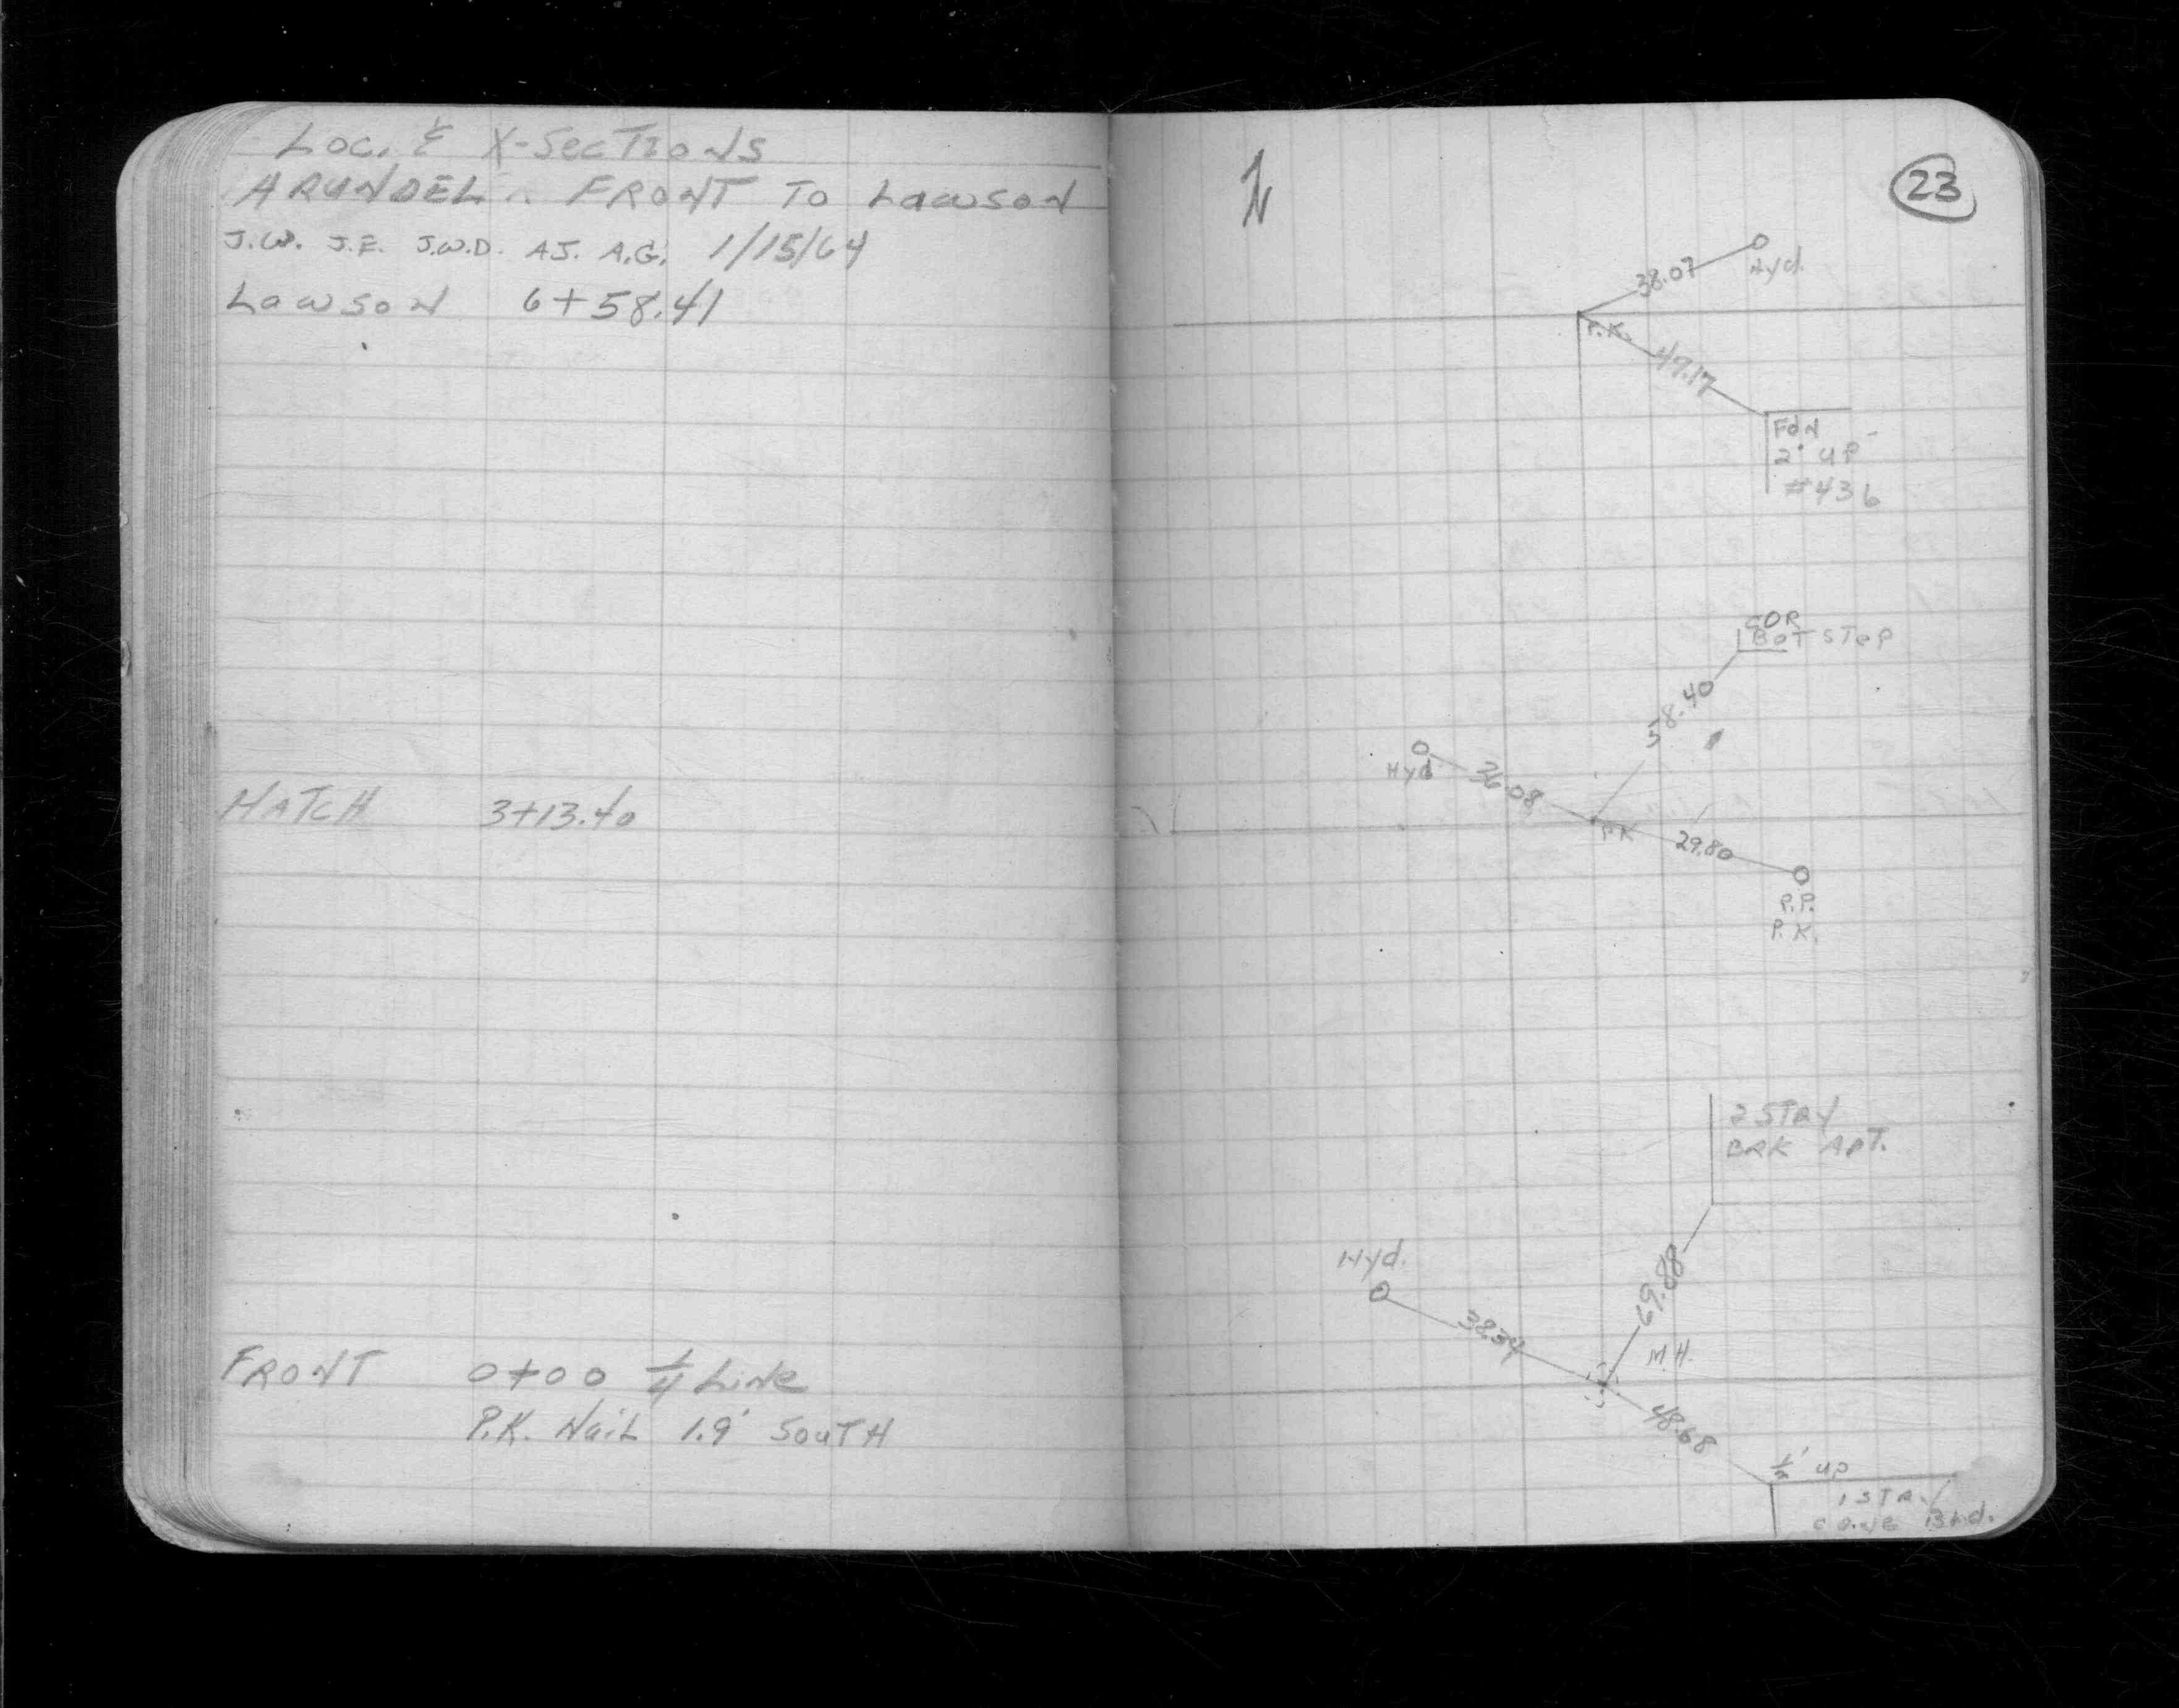 Loc. & X-Sections
ARUNDEL FRONT TO LAWSON
J.W. J.E. J.W.D. AJ. A.G. 1/15/64
Lawson 6+58.41
HATCH 3+13.40
FRONT 0+00 1/4 Line
P.K. Nail 1.9' South
23
38.07
Hyd.
P.K.
47.17
Fdn
2' up
#436
COR
BOT STEP
58.40
Hyd
36.08
PK
29.80
P.P.
P.K.
2 STRY
BRK APT.
Hyd.
69.88
38.34
M.H.
48.68
1/2' up
1 STRY
CONC BLd.